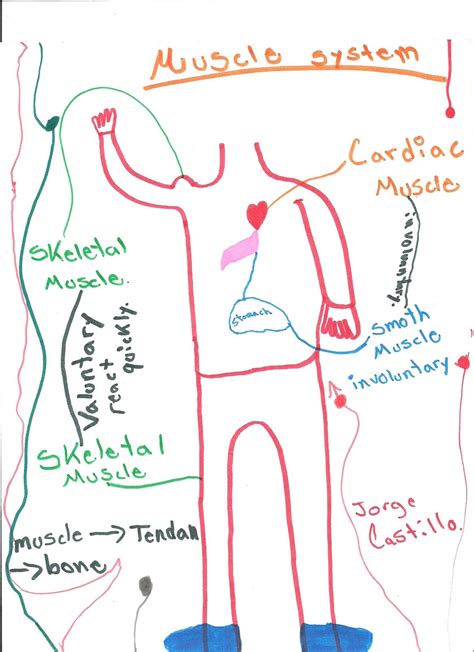 Muscle system
Cardiac
Muscle
involuntary.
Skeletal
Muscle.
Stomach
Smoth
Muscle
involuntary
Valuntary
react
quickly.
Skeletal
Muscle
Jorge
Castillo.
muscle → Tendan
→ bone